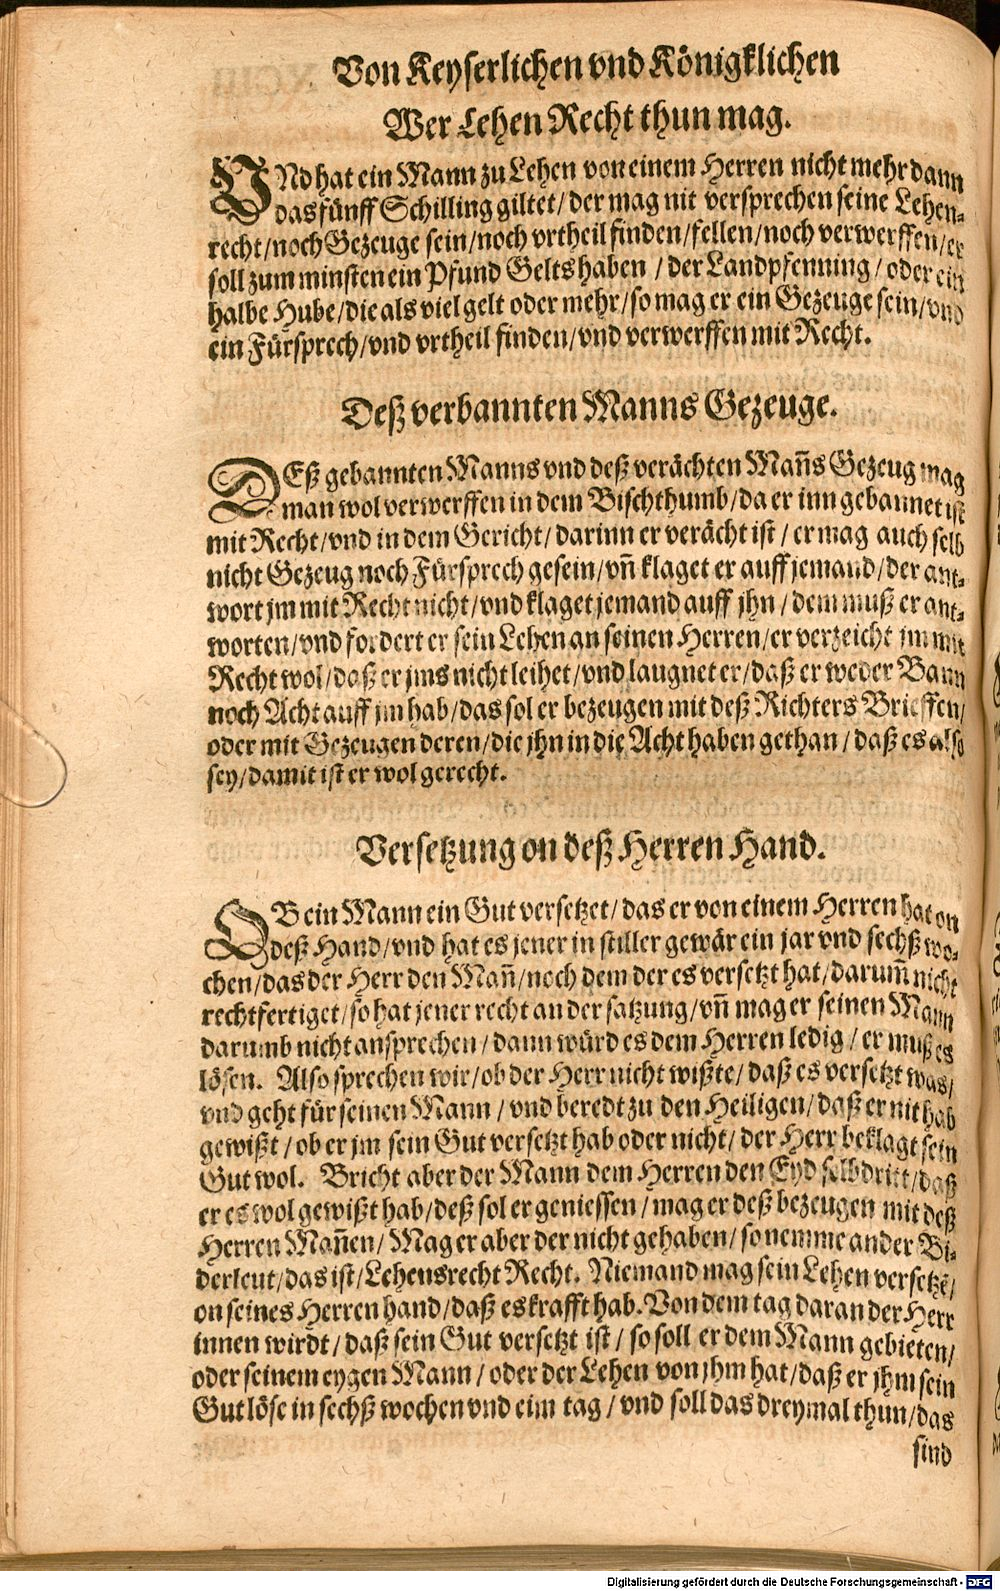 Von Keyserlichen vnd Königklichen
Wer Lehen Recht thun mag.
VNd hat ein Mann zu Lehen von einem Herren nicht mehr dann
das fünff Schilling giltet/ der mag nit versprechen seine Lehen-
recht/noch Gezeuge sein/noch vrtheil finden/fellen/noch verwerffen/er
soll zum minsten ein Pfund Gelts haben / der Landpfenning/ oder ein
halbe Hube/die als viel gelt oder mehr/so mag er ein Gezeuge sein/vnd
ein Fürsprech/vnd vrtheil finden/vnd verwerffen mit Recht.
Deß verbannten Manns Gezeuge.
DEß gebannten Manns vnd deß verächten Mañs Gezeug mag
man wol verwerffen in dem Bischthumb/da er inn gebannet ist
mit Recht/vnd in dem Gericht/darinn er verächt ist / er mag auch selb
nicht Gezeug noch Fürsprech gesein/vñ klaget er auff jemand/der ant-
wort jm mit Recht nicht/vnd klaget jemand auff jhn / dem muß er ant-
worten/vnd fordert er sein Lehen an seinen Herren/er verzeicht jm mit
Recht wol/daß er jms nicht leihet/vnd laugnet er/daß er weder Bann
noch Acht auff jm hab/das sol er bezeugen mit deß Richters Brieffen/
oder mit Gezeugen deren/die jhn in die Acht haben gethan / daß es also
sey/damit ist er wol gerecht.
Versetzung on deß Herren Hand.
OB ein Mann ein Gut versetzet/das er von einem Herren hat on
deß Hand/vnd hat es jener in stiller gewär ein jar vnd sechß wo-
chen/das der Herr den Mañ/noch dem der es versetzt hat/darumm̃ nicht
rechtfertiget/so hat jener recht an der satzung/vñ mag er seinen Mann
darumb nicht ansprechen/dann würd es dem Herren ledig / er muß es
lösen. Also sprechen wir/ob der Herr nicht wißte/daß es versetzt was/
vnd geht für seinen Mann / vnd beredt zu den Heiligen/daß er nit hab
gewißt / ob er jm sein Gut versetzt hab oder nicht/ der Herr beklagt sein
Gut wol. Bricht aber der Mann dem Herren den Eyd selbdritt/daß
er es wol gewißt hab/deß sol er geniessen / mag er deß bezeugen mit deß
Herren Mañen/ Mag er aber der nicht gehaben/so nemme ander Bi-
derleut/das ist/Lehensrecht Recht. Niemand mag sein Lehen versetzẽ/
on seines Herren hand/daß es krafft hab. Von dem tag daran der Herr
innen wirdt/daß sein Gut versetzt ist / so soll er dem Mann gebieten/
oder seinem eygen Mann / oder der Lehen von jhm hat/daß er jhm sein
Gut löse in sechß wochen vnd eim tag / vnd soll das dreymal thun/das
sind
Digitalisierung gefördert durch die Deutsche Forschungsgemeinschaft - DFG